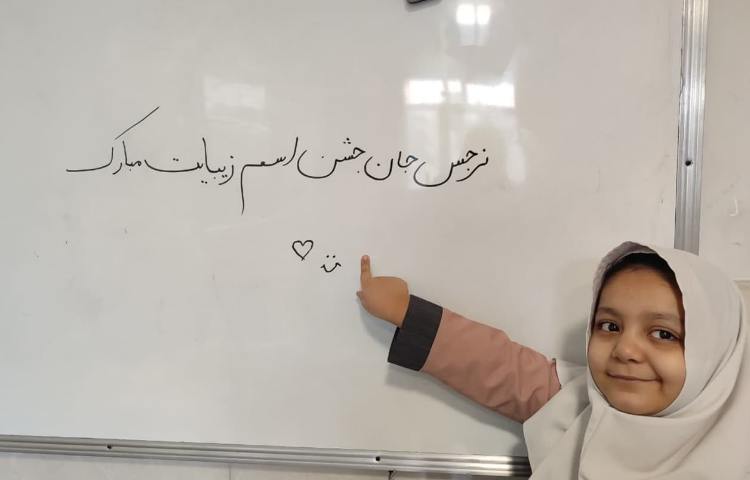 نرجس جان جشن اسم زیبایت مبارک